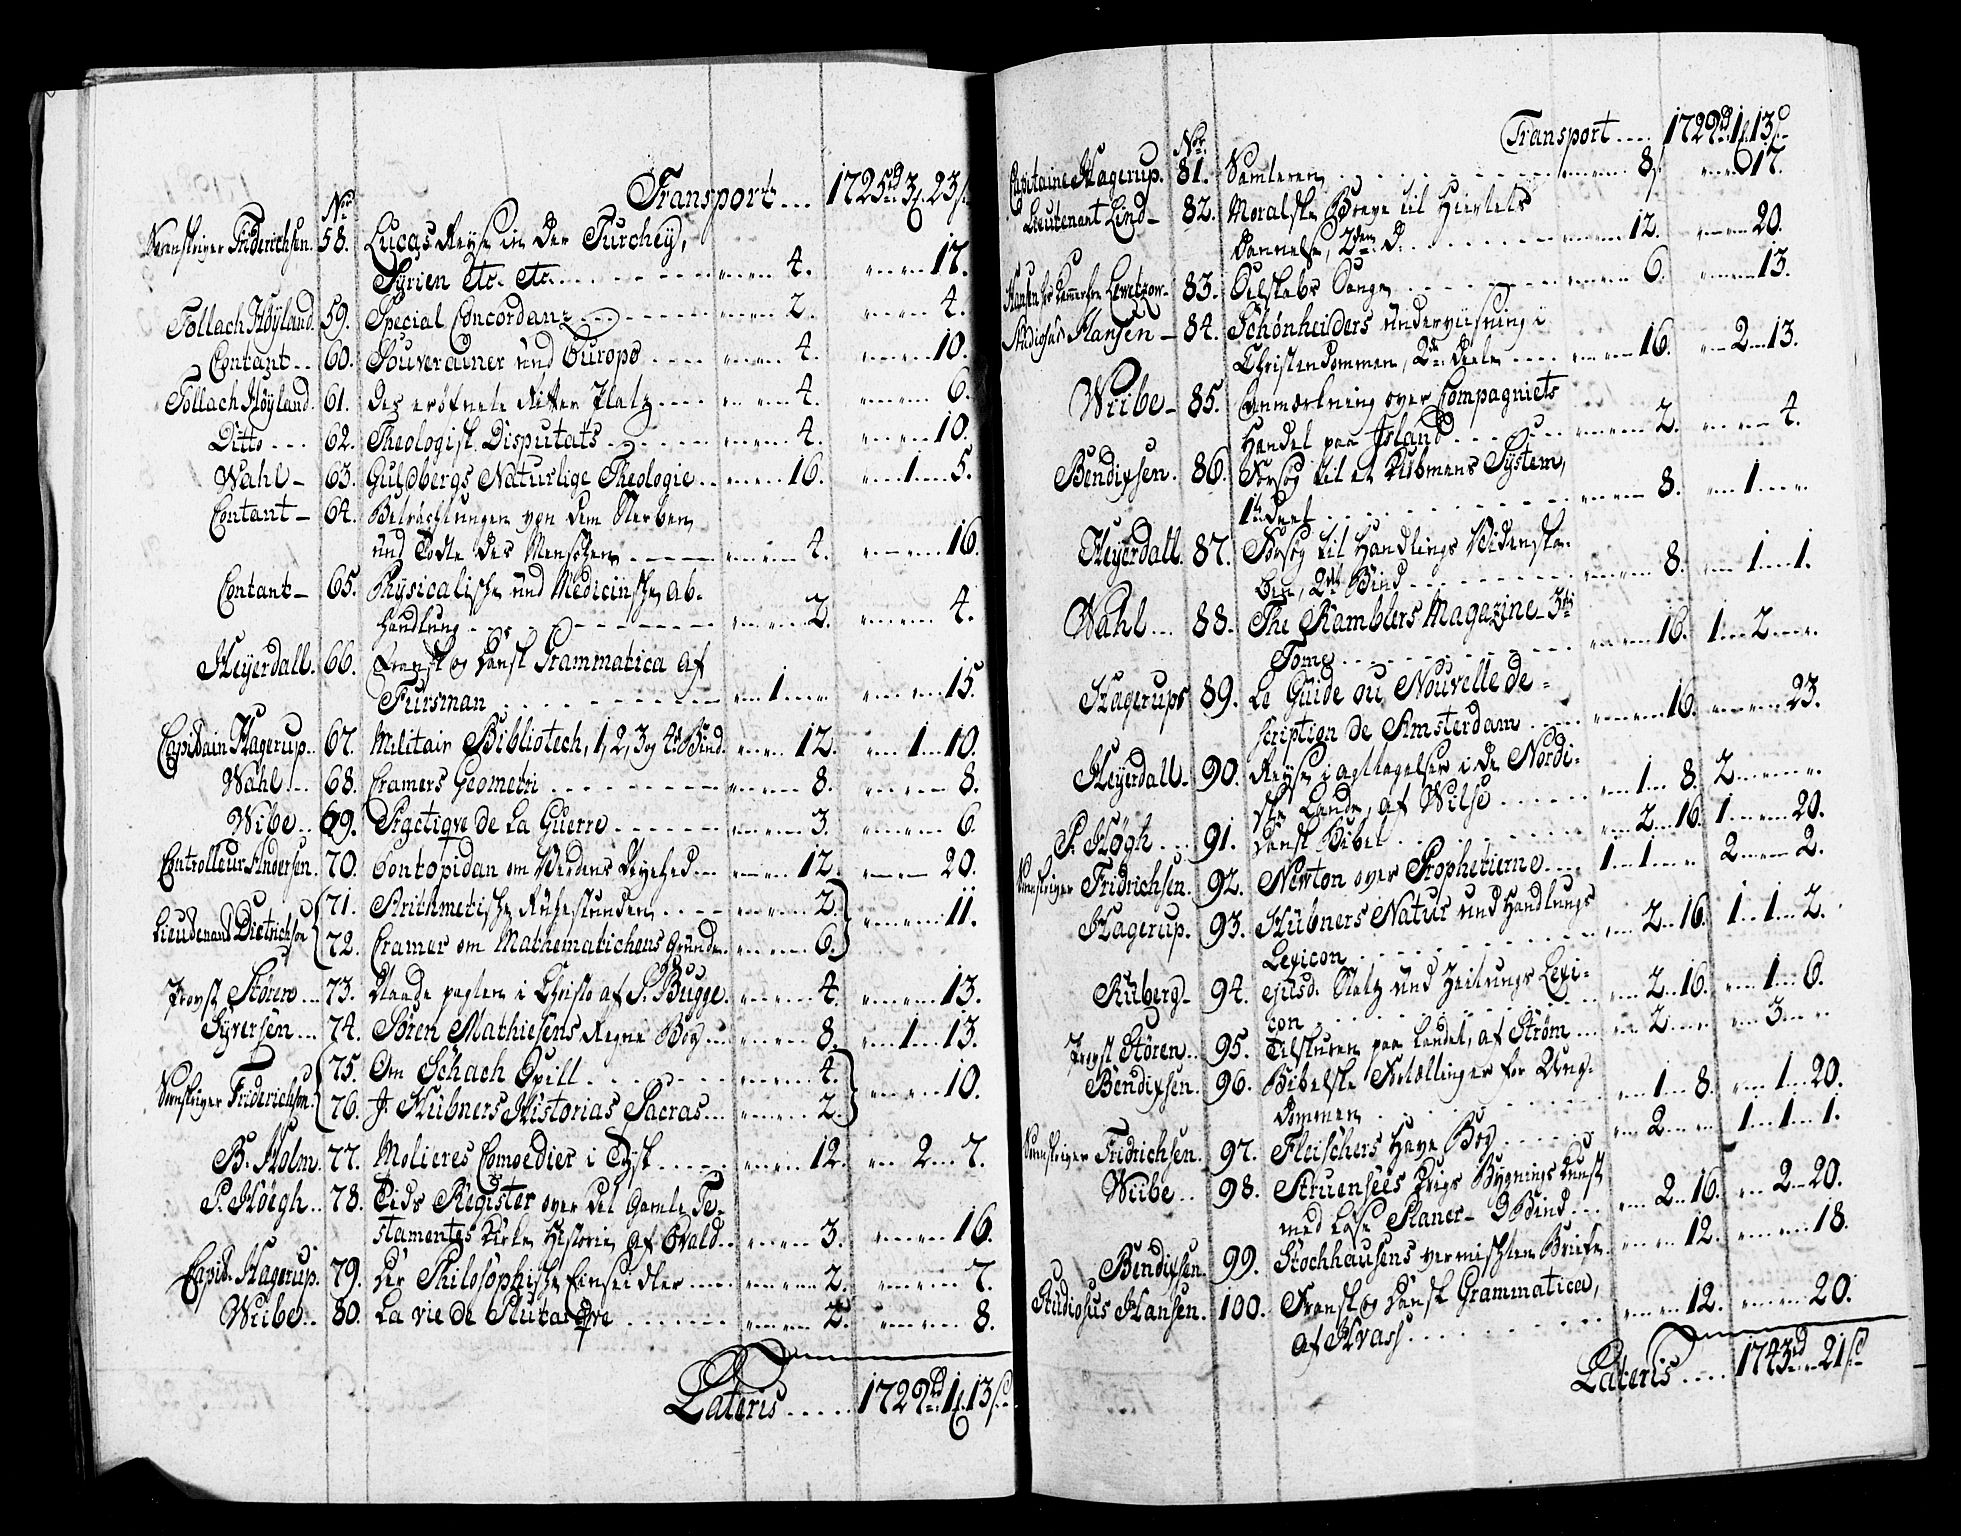 Transport... 1725rd 3. 23s
No
Sorenskriver Friderichsen. 58. Lucas Reyse in der Turchey,
Syrien etc. etc. 4. 17.
Tollach Höyland. 59. Special Concordanz 2. 4.
Contant.. 60. Souverainer und Europs 4. 10.
Tollach Höyland. 61. Der eröfnete Ritter Platz 4. 6.
Ditto... 62. Theologisk Disputats 4. 10.
Wahl- 63. Guldbergs Naturlige Theologie 16. 1. 5.
Contant- 64. Betrachtungen von dem Sterben
und Todte des Menschen 4. 16.
Contant- 65. Physicalische und Medicinsche Ab-
handlung 2. 4.
Heyerdall. 66. Fransk og Dansk Grammatica af
Fursman 1. 15.
Capitain Hagerup. 67. Militair Bibliotech, 1, 2, 3 og 4de Bind 12. 1. 10.
Wahl... 68. Cramers Geometri 8. 8.
Wibe.. 69. Practiqve de La Guerre 3. 6.
Controlleur Andersen. 70. Pontopidan om Verdens Nyehed 12. 20.
Lieutenand Dietrichson 71. Arithmetische Ruhestunden 2. 11.
72. Cramer om Mathematichens Grunde 6.
Provst Stören... 73. Naade pagten i Christo af P. Bugge 4. 13.
Syversen... 74. Sören Mathiesens Regne Bog 8. 1. 13.
Sorenskriver Friderichsen 75. Om Schach Spill 4. 10.
76. J. Hübners Historias Sacras 2.
B. Holm. 77. Molieres Comoedier i Tysk 12. 2. 7.
P. Höegh.. 78. Tids Register over det Gamle Te-
stamentes Kirke Historie af Evald 3. 16.
Capit. Hagerup. 79. Der Philosophische Einseidler 2. 7.
Wiibe.. 80. La vie de Plutarqve 2. 8.
Lateris..... 1729rd 1. 13s
Transport.... 1729rd 1. 13s
No
Capitaine Hagerup. 81. Samleren 8. 17.
Lieutenant Lind- 82. Moralske Breve til Hiertets
Dannelse, 2den D. 12. 20.
Hansen hos Kammerhr Levetzow- 83. Selskabs Sange 6. 13.
Studiosus Hansen- 84. Schönheiders underviisning i
Christendommen, 2de Deele 16. 2. 13.
Wiibe- 85. Anmærkning over Compagniets
Handel paa Island 2. 4.
Bendixsen. 86. Forsög til et Kiöbmans System,
1te Deel 8. 1.
Heyerdall. 87. Forsög til Handlings Videnska-
ben, 2det Bind 8. 1. 1.
Wahl... 88. The Ramblers Magazine- 3die
Tome 16. 1. 2.
Hagerups 89. Le Guide ou Nouvelle de-
scription de Amsterdam 16. 23.
Heyerdall. 90. Reyse iagttagelser i de Nordi-
ske Lande, af Wilse 1. 8. 2.
P. Högh... 91. Dansk Bibel 2. 16. 1. 20.
Sorenskriver Fridrichsen. 92. Newton over Prophetierne 1. 1. 2. 2.
Hagerup. 93. Hübners Natur und Handlungs
Lexicon 2. 16. 1. 1. 2.
Ruberg- 94. ejusd. Statz und Zeitungs Lexi-
con 2. 16. 1. 6.
Provst Stören.. 95. Tilskuren paa Landet, af Ström 2. 3.
Bendixsen. 96. Bibelske Fortællinger for Ung-
dommen 1. 8. 1. 20.
Sorenskriver Fridrichsen. 97. Fleischers Have Bog 2. 1. 1. 1.
Wiibe.. 98. Struensees Krigs Bygnings Kunst
med Löse Planer- 3 Bind 2. 16. 2. 20.
Bendixsen. 99. Stochhausens vermischten Briefe 12. 18.
Studiosus Hansen. 100. Fransk og Dansk Grammatica,
af Hvass 12. 20.
Lateris.... 1743rd 21s